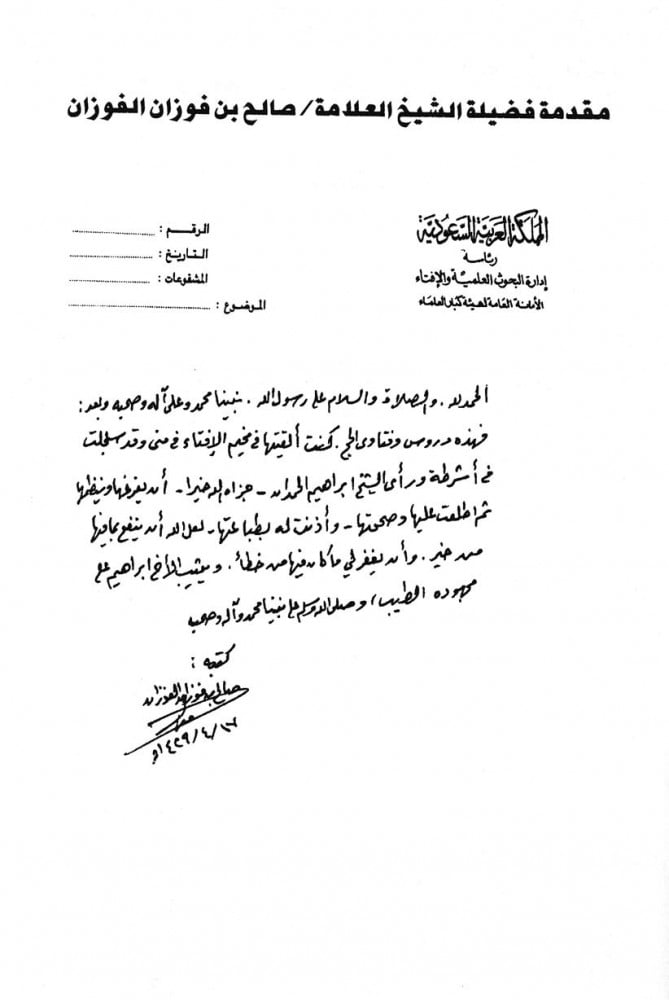 مقدمة فضيلة الشيخ العلامة/ صالح بن فوزان الفوزان
المملكة العربية السعودية
رئاسة
إدارة البحوث العلمية والإفتاء
الأمانة العامة لهيئة كبار العلماء
الرقم :
التاريخ :
المشفوعات :
الموضوع :
الحمد لله . والصلاة والسلام على رسول الله . نبينا محمد وعلى آله وصحبه وبعد :
فهذه دروس وفتاوى الحج . كنت ألقيتها في مخيم الإفتاء في منى وقد سجلت
في أشرطة ورأى الشيخ ابراهيم الحمدان - جزاه الله خيرا - أن يفرغها وينظمها
ثم اطلعت عليها وصححتها - وأذنت له بطباعتها - لعل الله أن ينفع بما فيها
من خير . وأن يغفر لي ما كان فيها من خطأ . ويثيب الأخ ابراهيم على
مجهوده الطيب ، وصلى الله وسلم على نبينا محمد وآله وصحبه
كتبه :
صالح بن فوزان الفوزان
١٤٢٩/٤/١٧هـ